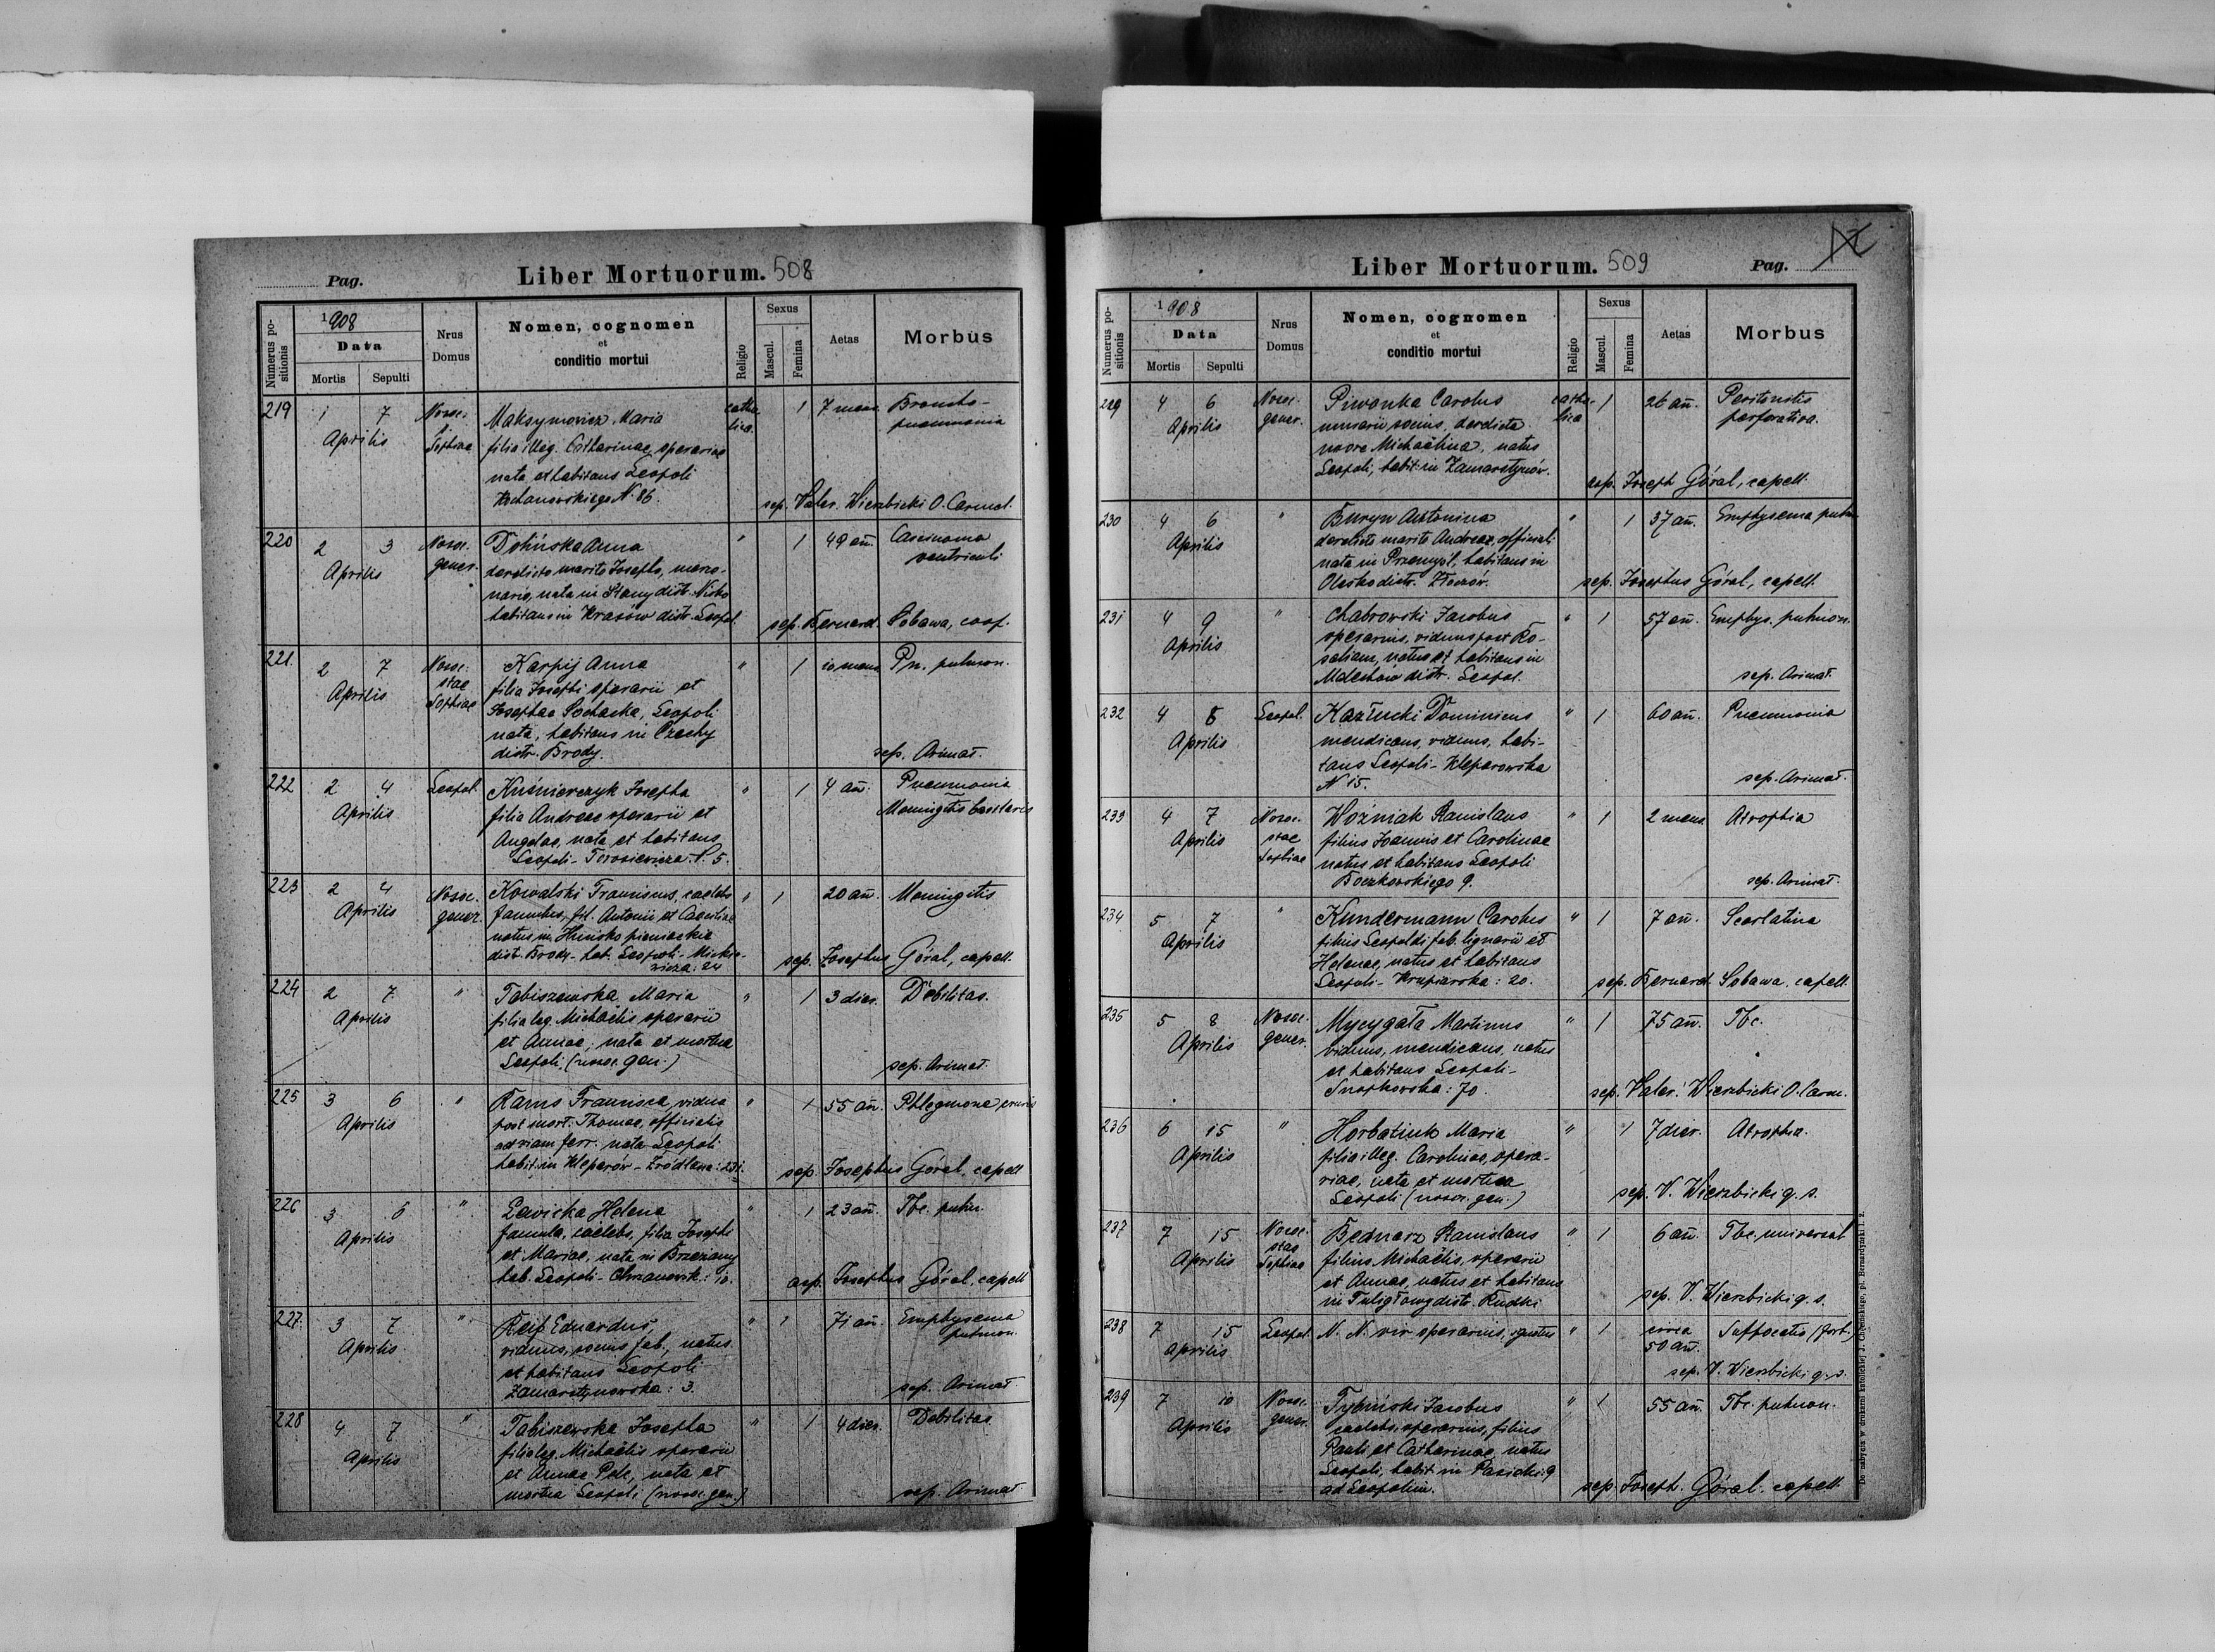 Pag.
Liber Mortuorum. 508
Numerus positionis
1908
Data
Mortis
Sepulti
Nrus Domus
Nomen, cognomen
et
conditio mortui
Religio
Sexus
Mascul.
Femina
Aetas
Morbus
219 1 7 Aprilis Nosoc. S. Sophiae
Maksymowicz Maria
filia illeg. Catharinae operariae
nata et habitans Leopoli
Kochanowskiego N. 86.
catholica 1 7 mens. Broncho-
pneumonia
sep. Valer. Wierzbicki O. Carmel.
220 2 3 Aprilis Nosoc. gener.
Dolińska Anna
derelicto marito Josepho, merce-
nario, nata in Stany distr. Nisko
habitans in Krasów distr. Leopol.
" 1 49 añ. Carcinoma
ventriculi
sep. Bernard. Sobawa, coop.
221. 2 7 Aprilis Nosoc. stae Sophiae
Karpij Anna
filia Josephi operarii et
Josephae Sochacka, Leopoli
nata, habitans in Czechy
distr. Brody.
" 1 10 mens. Pn. pulmon.
sep. Arimat.
222 2 4 Aprilis Leopol.
Kuśnierczyk Josepha
filia Andreae operarii et
Angelae, nata et habitans
Leopoli - Torosiewicza l. 5.
" 1 4 añ. Pneumonia
Meningitis basilaris
223 2 4 Aprilis Nosoc. gener.
Kowalski Franciscus, caelebs
famulus, fil. Antonii et
natus in Hucisko pieniackie
dist. Brody - hab. Leopoli - Mickie-
wicza: 24
" 1 20 añ. Meningitis
sep. Josephus Góral, capell.
224 2 7 Aprilis "
Tabiszewska Maria
filia leg. Michaëlis operarii
et Annae, nata et mortua
Leopoli (nosoc. gen.)
" 1 3 dier. Debilitas.
sep. Arimat.
225 3 6 Aprilis "
Rams Francisca, vidua
post mort. Thomae, officialis
ad viam ferr. nata Leopoli
habit. in Kleparów - Źródlana: 231.
" 1 55 añ. Phlegmone cruris
sep. Josephus Góral, capell
226 3 6 Aprilis "
Ławicka Helena
famula, caelebs, filia Josephi
et Mariae, nata in Brzeżany
hab. Leopoli - Chrzanowsk: 10.
" 1 23 añ. Tbc. pulm.
sep. Josephus Góral, capell
227. 3 7 Aprilis "
Reif Eduardus,
viduus, socius fab., natus
et habitans Leopoli
Zamarstynowska: 3.
" 1 71 añ. Emphysema
pulmon.
sep. Arimat
228 4 7 Aprilis "
Tabiszewska Josepha
filia leg. Michaëlis operarii
et Annae Pelc, nata et
mortua Leopoli (nosoc. gen.)
" 1 4 dier. Debilitas
sep. Arimat
Liber Mortuorum. 509
Pag.
Numerus positionis
1908
Data
Mortis
Sepulti
Nrus Domus
Nomen, cognomen
et
conditio mortui
Religio
Sexus
Mascul.
Femina
Aetas
Morbus
229 4 6 Aprilis Nosoc. gener.
Piwonka Carolus
socius, derelicta
uxore Michaëlina, natus
Leopoli, habit. in Zamarstynów.
catholica 1 26 añ. Peritonitis
perforativa.
sep. Joseph Góral, capell.
230 4 6 Aprilis "
Buryn Antonina
derelicto marito Andreae, official.
nata in Przemyśl, habitans in
Olesko distr. Złoczów.
" 1 37 añ. Emphysema pulm.
sep. Josephus Góral, capell.
231 4 9 Aprilis "
Chabrowski Jacobus
operarius, viduus post Ro-
saliam, natus et habitans in
Malechów distr. Leopol.
" 1 57 añ. Emphys. pulmon.
sep. Arimat.
232 4 8 Aprilis Leopol.
Kazłucki Dominicus
mendicans, viduus, habi-
tans Leopoli - Kleparowska
N 15.
" 1 60 añ. Pneumonia
sep. Arimat.
233 4 7 Aprilis Nosoc. stae Sophiae
Woźniak Stanislaus
filius Joannis et Carolinae
natus et habitans Leopoli
Boczkowskiego 9.
" 1 2 mens. Atrophia
sep. Arimat.
234 5 7 Aprilis "
Kundermann Carolus
filius Leopoldi fab. lignarii et
Helenae, natus et habitans
Leopoli - Krupiarska: 20.
" 1 7 añ. Scarlatina
sep. Bernard. Sobawa. capell.
235 5 8 Aprilis Nosoc. gener.
Mycygała Martinus
viduus, mendicans, natus
et habitans Leopoli -
Snopkowska: 70.
" 1 75 añ. Tbc.
sep. Valer. Wierzbicki O. Carm.
236 6 15 Aprilis "
Horbatiuk Maria
filia illeg. Carolinae, opera-
riae, nata et mortua
Leopoli (nosoc. gen.)
" 1 7 dier. Atrophia.
sep. V. Wierzbicki g. s.
237 7 15 Aprilis Nosoc. stae Sophiae
Bednarz Stanislaus
filius Michaëlis, operarii
et Annae, natus et habitans
in Tuligłowy distr. Rudki
" 1 6 añ. Tbc. universal
sep. V. Wierzbicki g. s.
238 7 15 Aprilis Leopol.
N. N. vir operarius, ignotus
" 1 circa
50 añ. Suffocatio (fort.)
sep. V. Wierzbicki g. s.
239 7 10 Aprilis Nosoc. gener.
Tybiński Jacobus
caelebs, operarius, filius
Pauli et Catharinae, natus
Leopoli, habit. in Pasieki: 9
ad Leopolim.
" 1 55 añ. Tbc. pulmon.
sep. Joseph. Góral. capell.
Do nabycia w drukarni katolickiej J. Chęcińskiego, pl. Bernardyński l. 2.